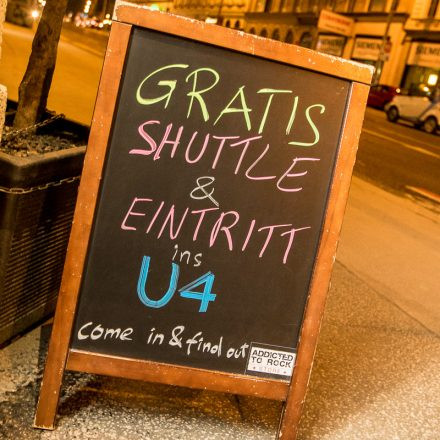 GRATIS
SHUTTLE
&
EINTRITT
ins
U4
come in & find out
ADDICTED
TO ROCK
STORE
SIEMENS